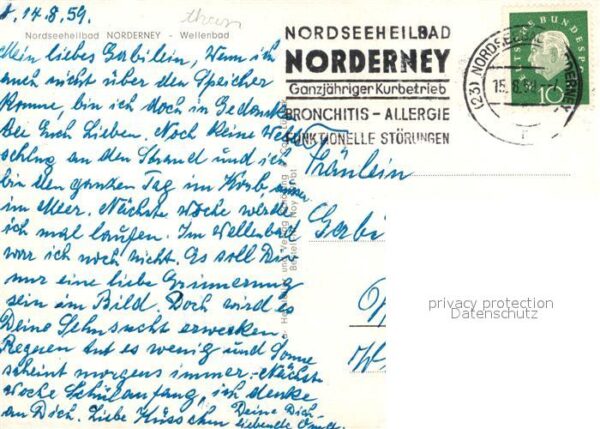 d. 14.8.59.
Nordseeheilbad NORDERNEY - Wellenbad
Mein liebes Gabilein, Wenn ich
auch nicht über den Speicher
komme, bin ich doch in Gedanken
bei Euch Lieben. Noch keine Welle
schlug an den Strand und ich
bin den ganzen Tag im Korb, ausser
im Meer. Nächste Woche werde
ich mal laufen. Im Wellenbad
war ich noch nicht. Es soll Dir
nur eine liebe Erinnerung
sein im Bild. Doch wird es
Deine Sehnsucht erwecken.
Regnen tut es wenig und Sonne
scheint morgens immer. Nächste
Woche Schulanfang, ich denke
an Dich. Liebe Küsschen Deine Dich
liebende Oma.
NORDSEEHEILBAD
NORDERNEY
Ganzjähriger Kurbetrieb
BRONCHITIS - ALLERGIE
FUNKTIONELLE STÖRUNGEN
(23) NORDSEE
15.8.59
DEUTSCHE BUNDESPOST
10
Fräulein
Gabi
privacy protection
Datenschutz